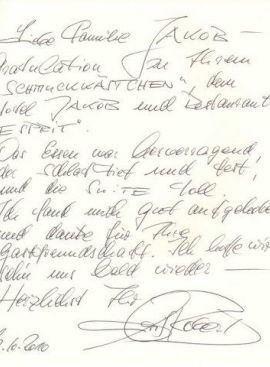 Liebe Familie JAKOB –
Gratulation zu Ihrem
"SCHMUCKKÄSTCHEN", dem
Hotel JAKOB und Restaurant
ESPRIT".
Das Essen war hervorragend,
der Schlaf tief und fest,
und die SUITE toll.
Ich fand mich gut aufgehoben
und danke für Ihre
Gastfreundschaft. Ich hoffe wir
sehn uns bald wieder –
Herzlichst Ihr
.10.2010